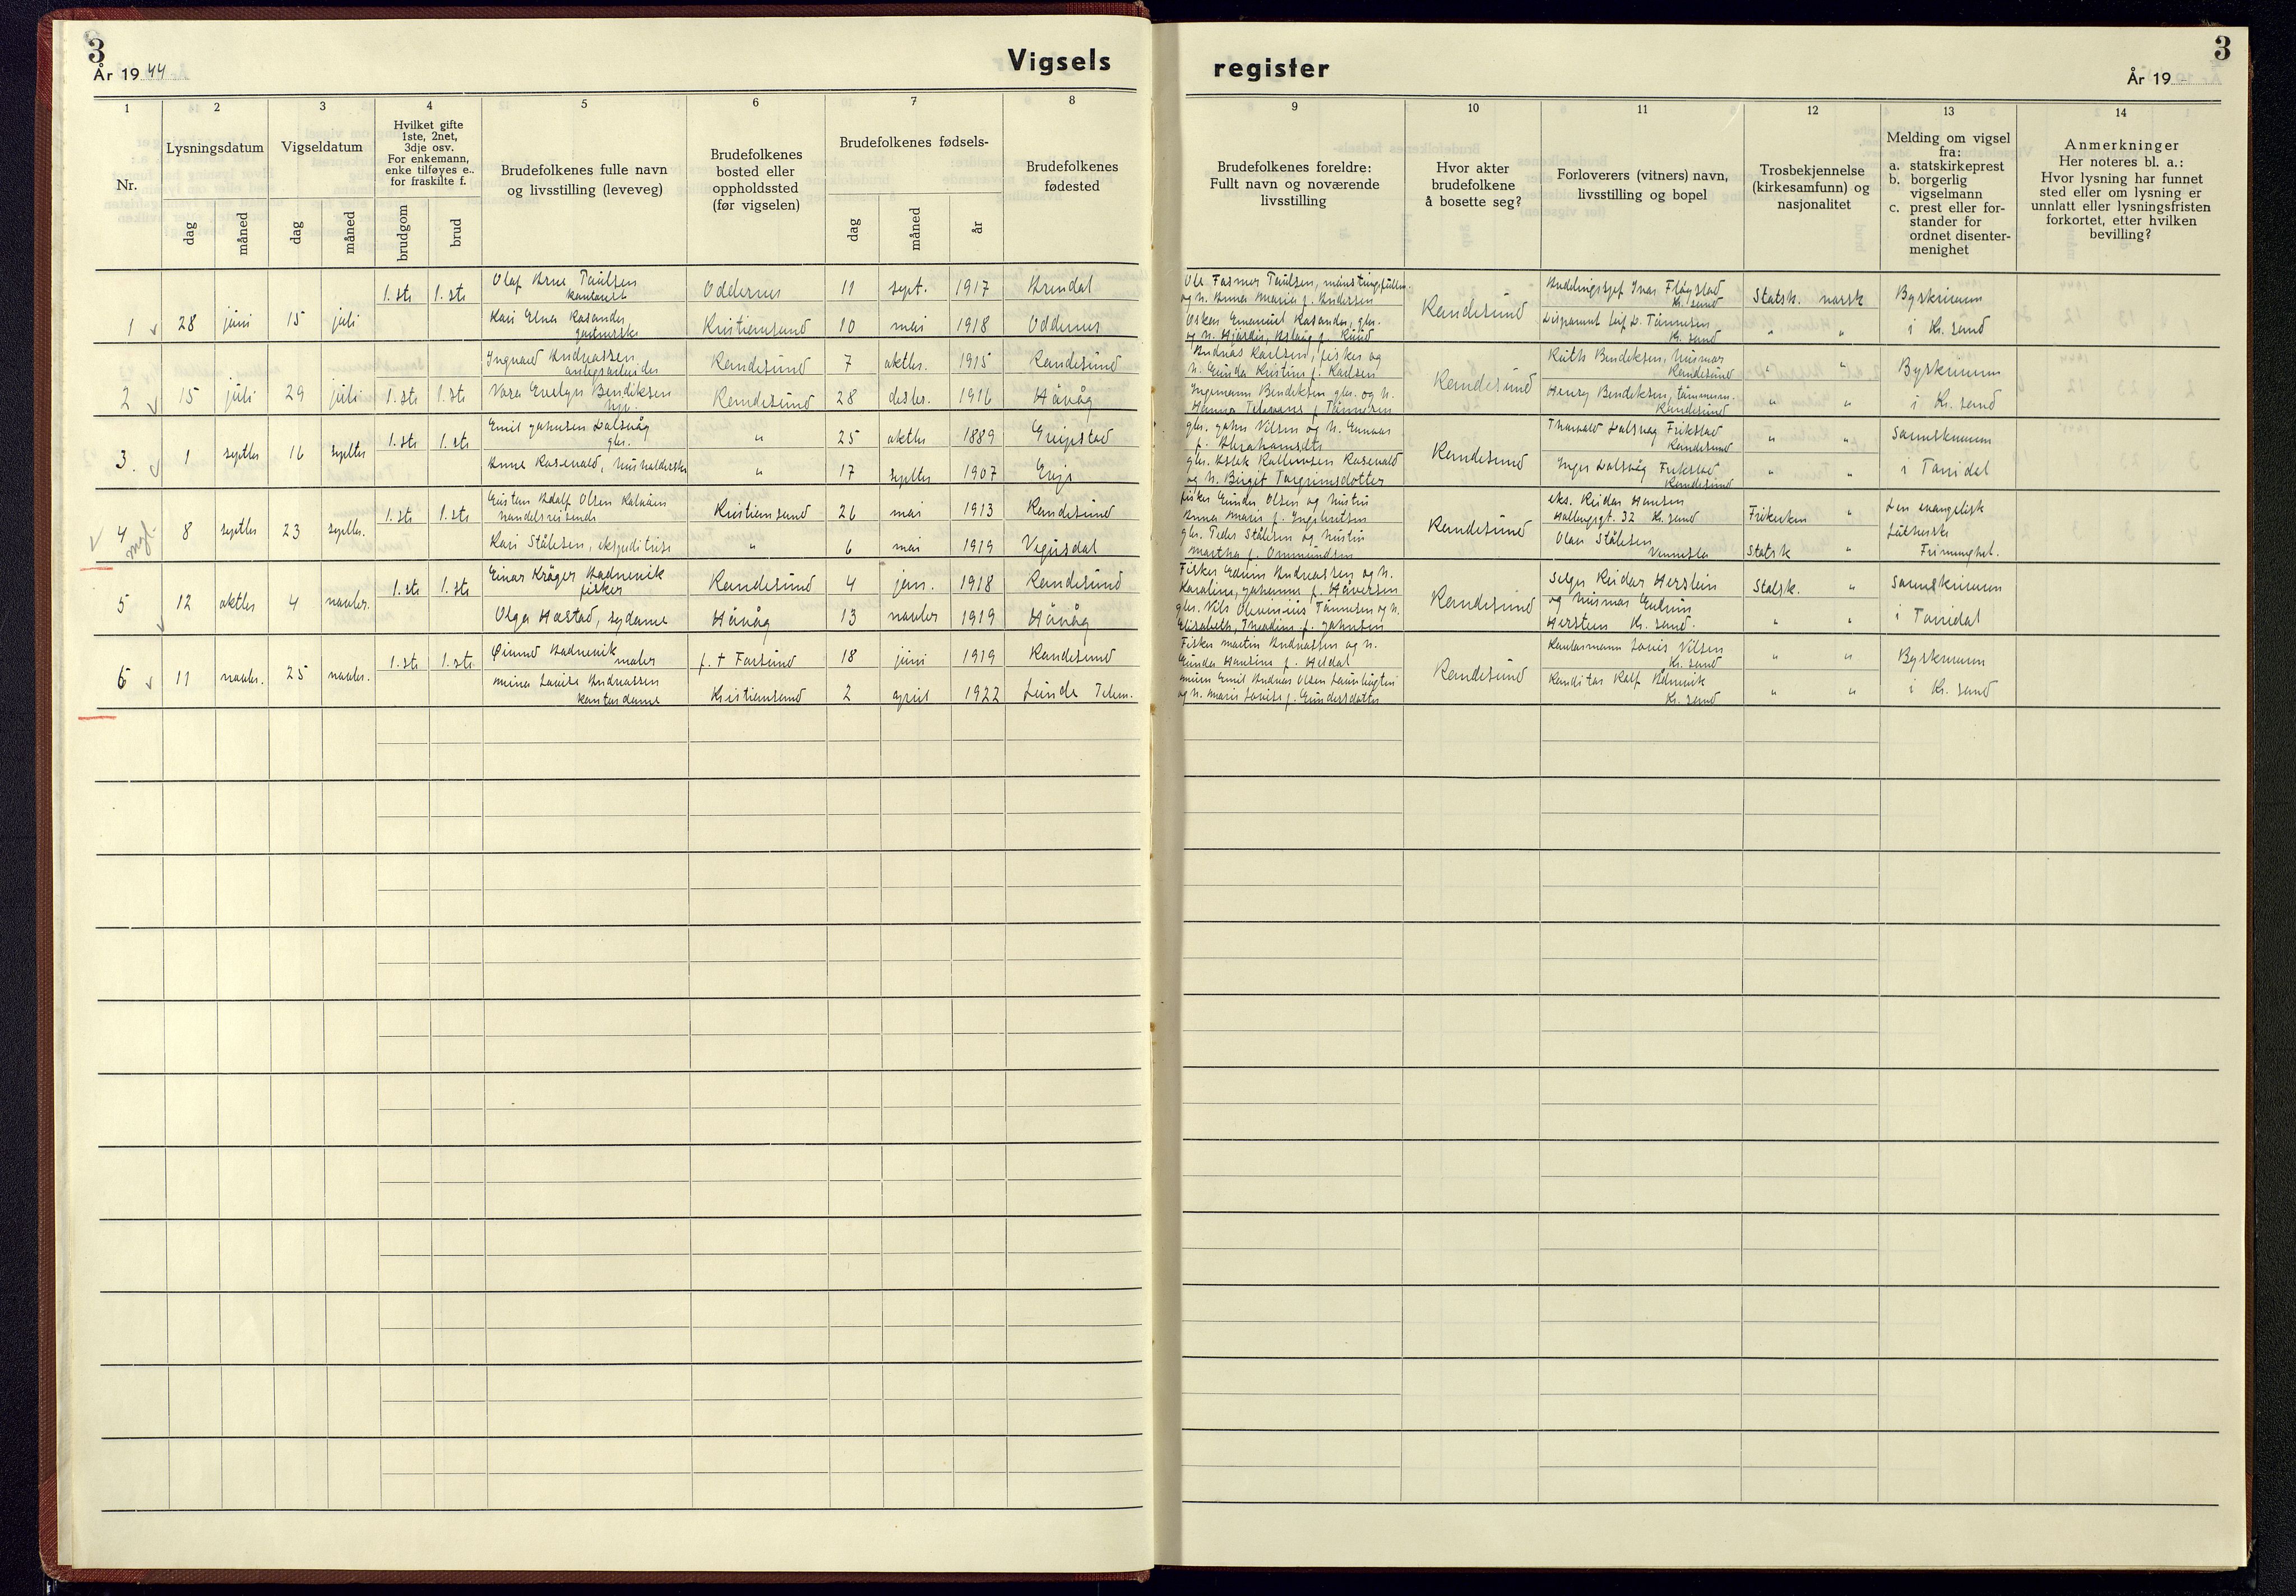 3
År 19 44
Vigsels
1
2
3
4
5
6
7
8
Nr.
Lysningsdatum
dag
måned
Vigseldatum
dag
måned
Hvilket gifte
1ste, 2net,
3dje osv.
For enkemann,
enke tilføyes e..
for fraskilte f.
brudgom
brud
Brudefolkenes fulle navn
og livsstilling (leveveg)
Brudefolkenes
bosted eller
oppholdssted
(før vigselen)
Brudefolkenes fødsels-
dag
måned
år
Brudefolkenes
fødested
1.ste 1.ste Olaf Arne Paulsen Oddernes 11 sept. 1917 Arendal
kontorist
1 28 juni 15 juli Kari Elna Rosander Kristiansand 10 mai 1918 Oddernes
Ingvald Andreassen Randesund 7 oktbr. 1915 Randesund
anlegsarbeider
2 15 juli 29 juli 1.ste 1.ste Vera Evelyn Bendiksen Randesund 28 desbr. 1916 Høvåg
1.ste 1.ste Emil Johnsen Dalsvåg " 25 oktbr 1889 Greipstad
gbr.
3. 1 septbr 16 septbr Anne Rosevold, husholderske " 17 septbr 1907
1.ste 1.ste Adolf Olsen Kristiansand 26 mai 1913 Randesund
handelsreisende
4 8 septbr 23 septbr. Kari Stålesen, ekspeditrise " 6 mai 1919 Vegusdal
1.ste 1.ste Einar Krøger Randesund 4 jan. 1918 Randesund
fisker
5 12 oktbr 4 novbr. Olga Hæstad, sydame Høvåg 13 novbr 1919 Høvåg
1.ste 1.ste Øivind f. t Farsund 18 juni 1919 Randesund
maler
6 11 novbr. 25 novbr. Louise Andreassen Kristiansand 2 april 1922 Lunde Telem.
kontordame
register
3
År 19
9
10
11
12
13
14
Brudefolkenes foreldre:
Fullt navn og noværende
livsstilling
Hvor akter
brudefolkene
å bosette seg?
Forloverers (vitners) navn,
livsstilling og bopel
Trosbekjennelse
(kirkesamfunn) og
nasjonalitet
Melding om vigsel
fra:
a. statskirkeprest
b. borgerlig
vigselmann
c. prest eller for-
stander for
ordnet disenter-
menighet
Anmerkninger
Her noteres bl. a.:
Hvor lysning har funnet
sted eller om lysning er
unnlatt eller lysningsfristen
forkortet, etter hvilken
bevilling?
Paulsen,
og h. Anna Marie f. Andersen
Oskar Emanuel Rosander, gbr.
og h. Hjørdis, Aslaug f. Ruud
Randesund
Avdelingssjef Ivar Fløystad
Kr. sand
Disponent Leif D. Tønnesen
Kr. sand
Statsk. norsk
" "
Byskriveren
i Kr. sand
Andreas Karlsen, fisker og
h. Gunda Kristine f. Karlsen
Ingemann Bendiksen gbr. og h.
Hanna f. Tønnesen
Randesund
Ruth Bendiksen, husmor
Randesund
Henry Bendiksen, tømmerm.
Randesund
" "
" "
Byskriveren
i Kr. sand
gbr. John Nilsen og h. Gunvor
f. Abrahamsdtr
gbr. Aslak Rosevold
og h. Birgit Torgrimsdotter
Randesund
Thorvald Dalsvåg Frikstad
Randesund
Inger Dalsvåg Frikstad
Randesund
" "
" "
Sorenskriveren
i Torridal
fisker Gunder Olsen og hustru
Anna Marie f. Ingebretsen
gbr. Peder Stålesen og hustru
Martha f. Ommundsen
Randesund
eks. Reidar Hansen
32 Kr. sand
Olav Stålesen
Vennesla
Frikirken "
Statsk "
Den evangelisk
Lutherske
Frimenighet.
Fisker Edvin Andreassen og h.
Karoline, Johanne f. Håversen
gbr. Nils Tønnesen og h.
Elisabeth, Theodine f. Johnsen
Randesund
Selger Reidar Herstein
og husmor Gudrun
Herstein Kr. sand.
Statsk. "
" "
Sorenskriveren
i Torridal
Fisker Martin Andreassen og h.
Gunda Hansine f. Heldal
Emil Andreas Olsen
og h. Marie Lovise f. Gundersdotter
Randesund
Kontormann Louis Nilsen
Kr. sand
Konditor Rolf
Kr. sand
" "
" "
Byskriveren
i Kr. sand